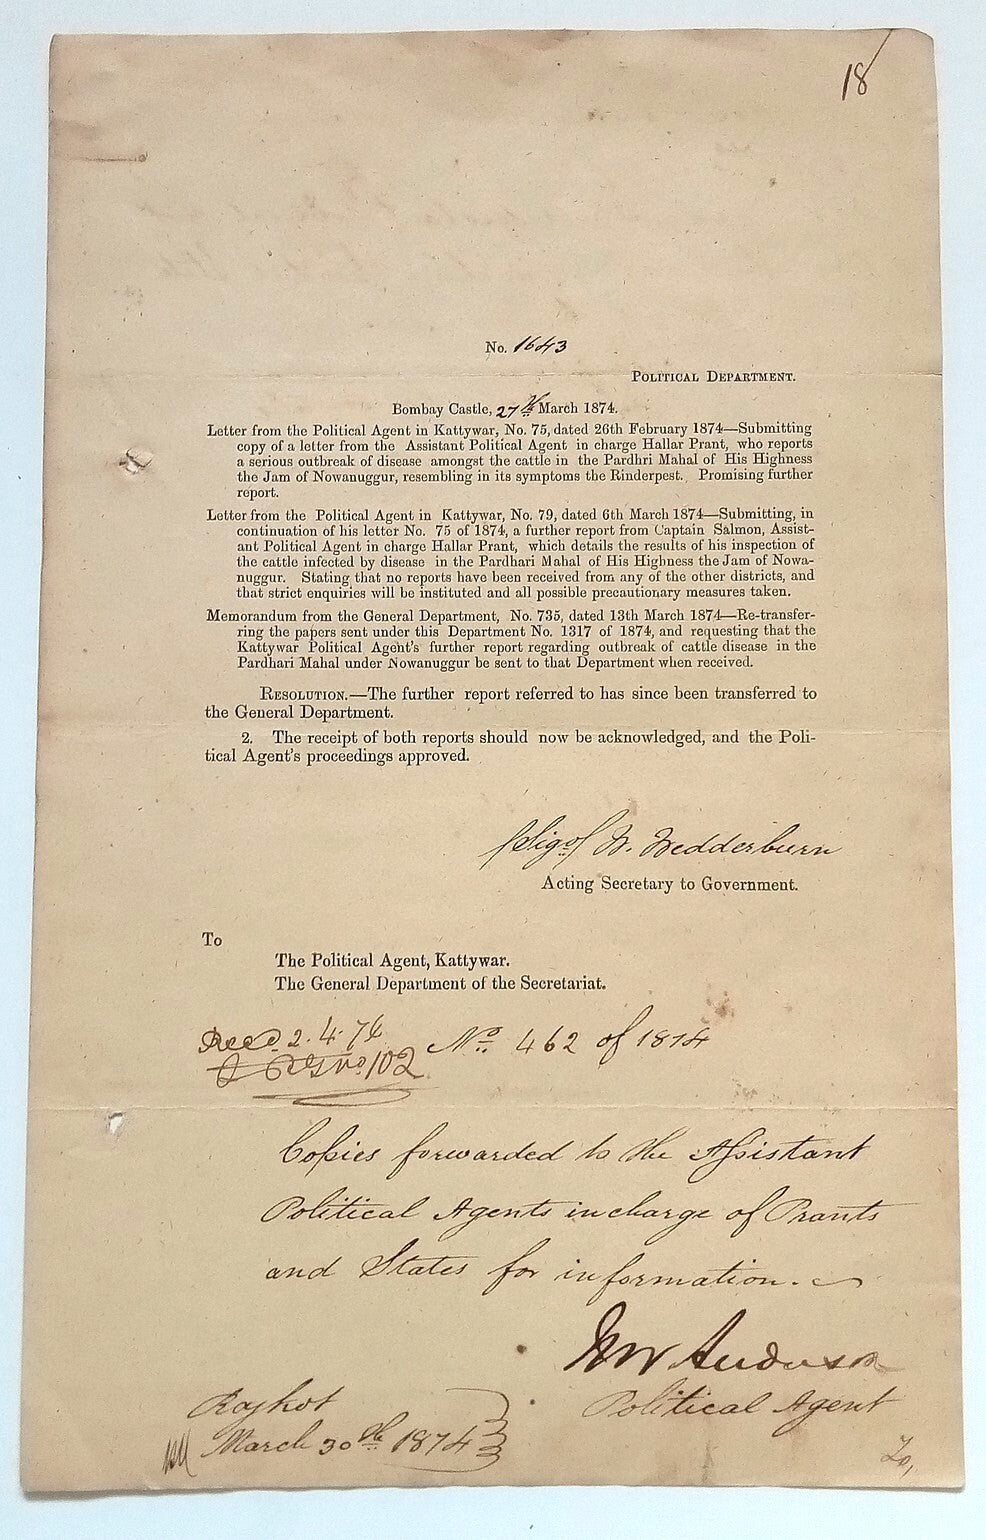 18
No. 1643
POLITICAL DEPARTMENT.
Bombay Castle, 27th March 1874.
Letter from the Political Agent in Kattywar, No. 75, dated 26th February 1874—Submitting
copy of a letter from the Assistant Political Agent in charge Hallar Prant, who reports
a serious outbreak of disease amongst the cattle in the Pardhri Mahal of His Highness
the Jam of Nowanuggur, resembling in its symptoms the Rinderpest. Promising further
report.
Letter from the Political Agent in Kattywar, No. 79, dated 6th March 1874—Submitting, in
continuation of his letter No. 75 of 1874, a further report from Captain Salmon, Assist-
ant Political Agent in charge Hallar Prant, which details the results of his inspection of
the cattle infected by disease in the Pardhari Mahal of His Highness the Jam of Nowa-
nuggur. Stating that no reports have been received from any of the other districts, and
that strict enquiries will be instituted and all possible precautionary measures taken.
Memorandum from the General Department, No. 735, dated 13th March 1874—Re-transfer-
ring the papers sent under this Department No. 1317 of 1874, and requesting that the
Kattywar Political Agent's further report regarding outbreak of cattle disease in the
Pardhari Mahal under Nowanuggur be sent to that Department when received.
RESOLUTION.—The further report referred to has since been transferred to
the General Department.
2. The receipt of both reports should now be acknowledged, and the Poli-
tical Agent's proceedings approved.
(Sigd) W. Wedderburn
Acting Secretary to Government.
To
The Political Agent, Kattywar.
The General Department of the Secretariat.
Recd. 2. 4. 74
No. 102
No. 462 of 1874
Copies forwarded to the Assistant
Political Agents in charge of Prants
and States for information.
W Anderson
Political Agent
Rajkot
March 30th 1874
To,